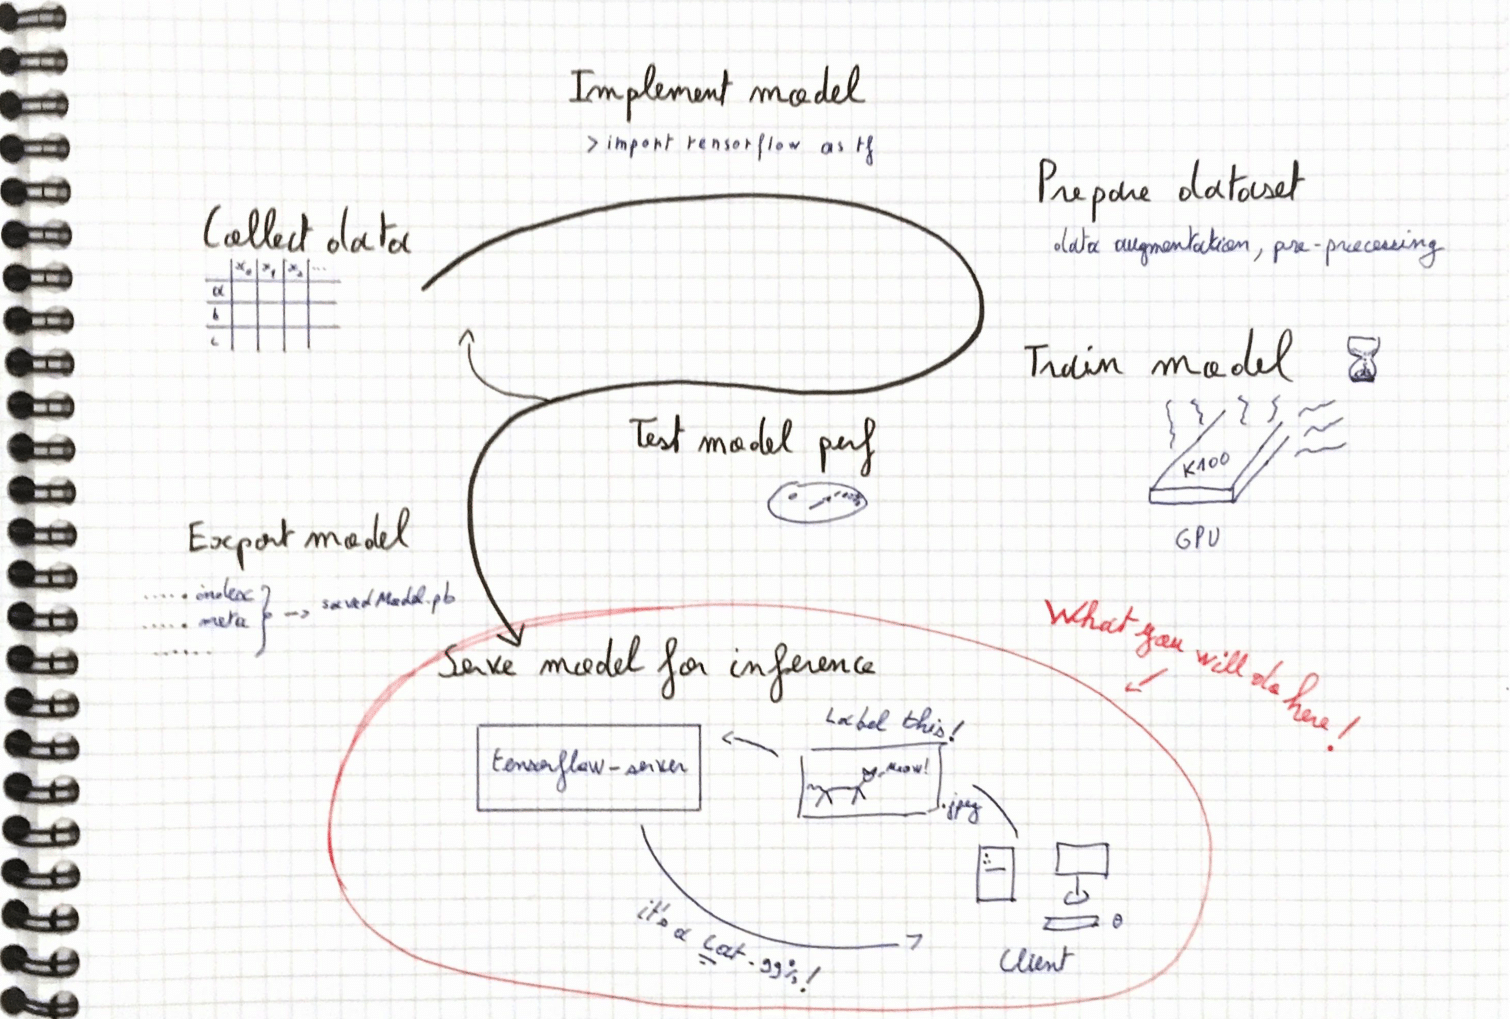 Implement model
> import tensorflow as tf
Prepare dataset
data augmentation, pre-processing
Collect data
x₀ x₁ x₂ ...
a
b
c
Train model
K100
GPU
Test model perf
Export model
..... index
..... meta
......
→ savedModel.pb
What you will do here!
Serve model for inference
Label this!
tensorflow-server
Meow!
.jpeg
it's a cat - 99%!
Client